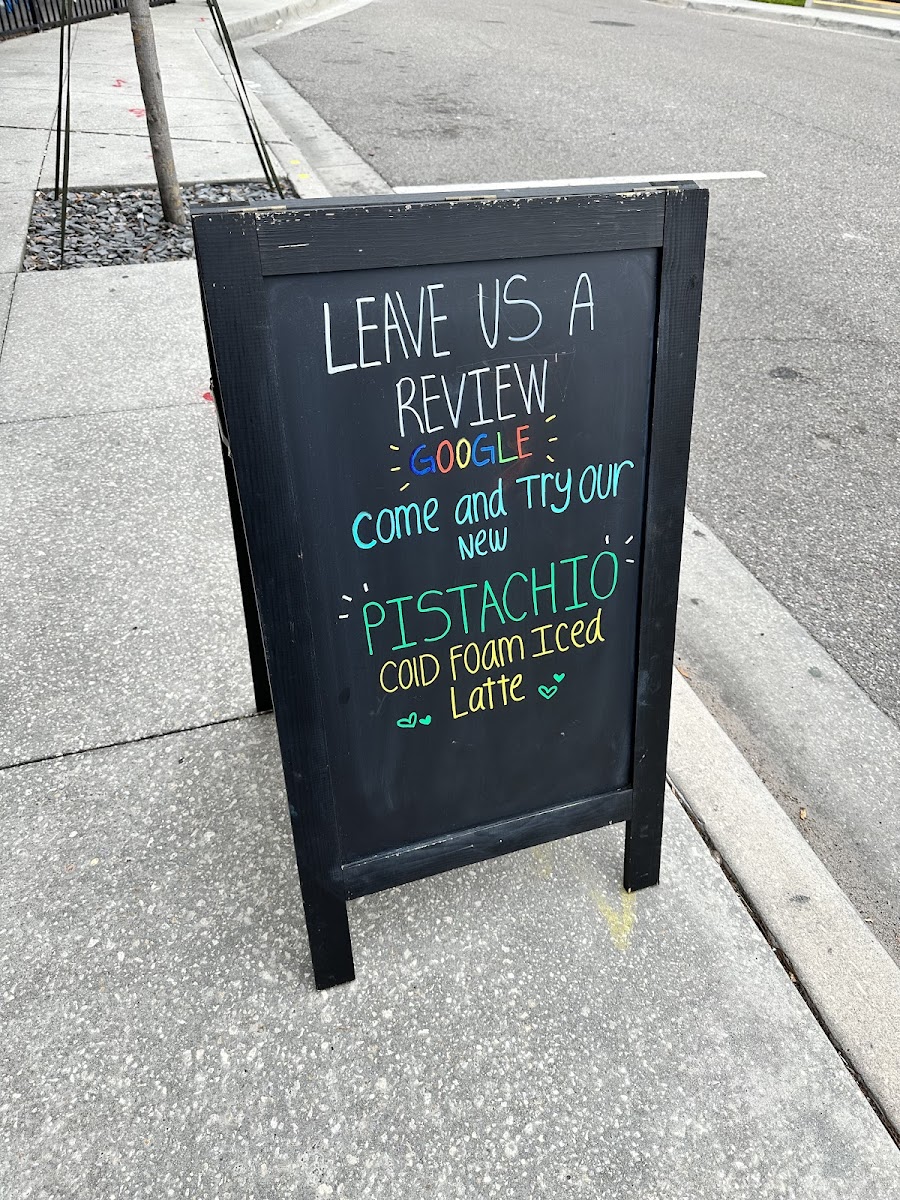 LEAVE US A
REVIEW
GOOGLE
Come and Try our
New
PISTACHIO
Cold Foam Iced
Latte